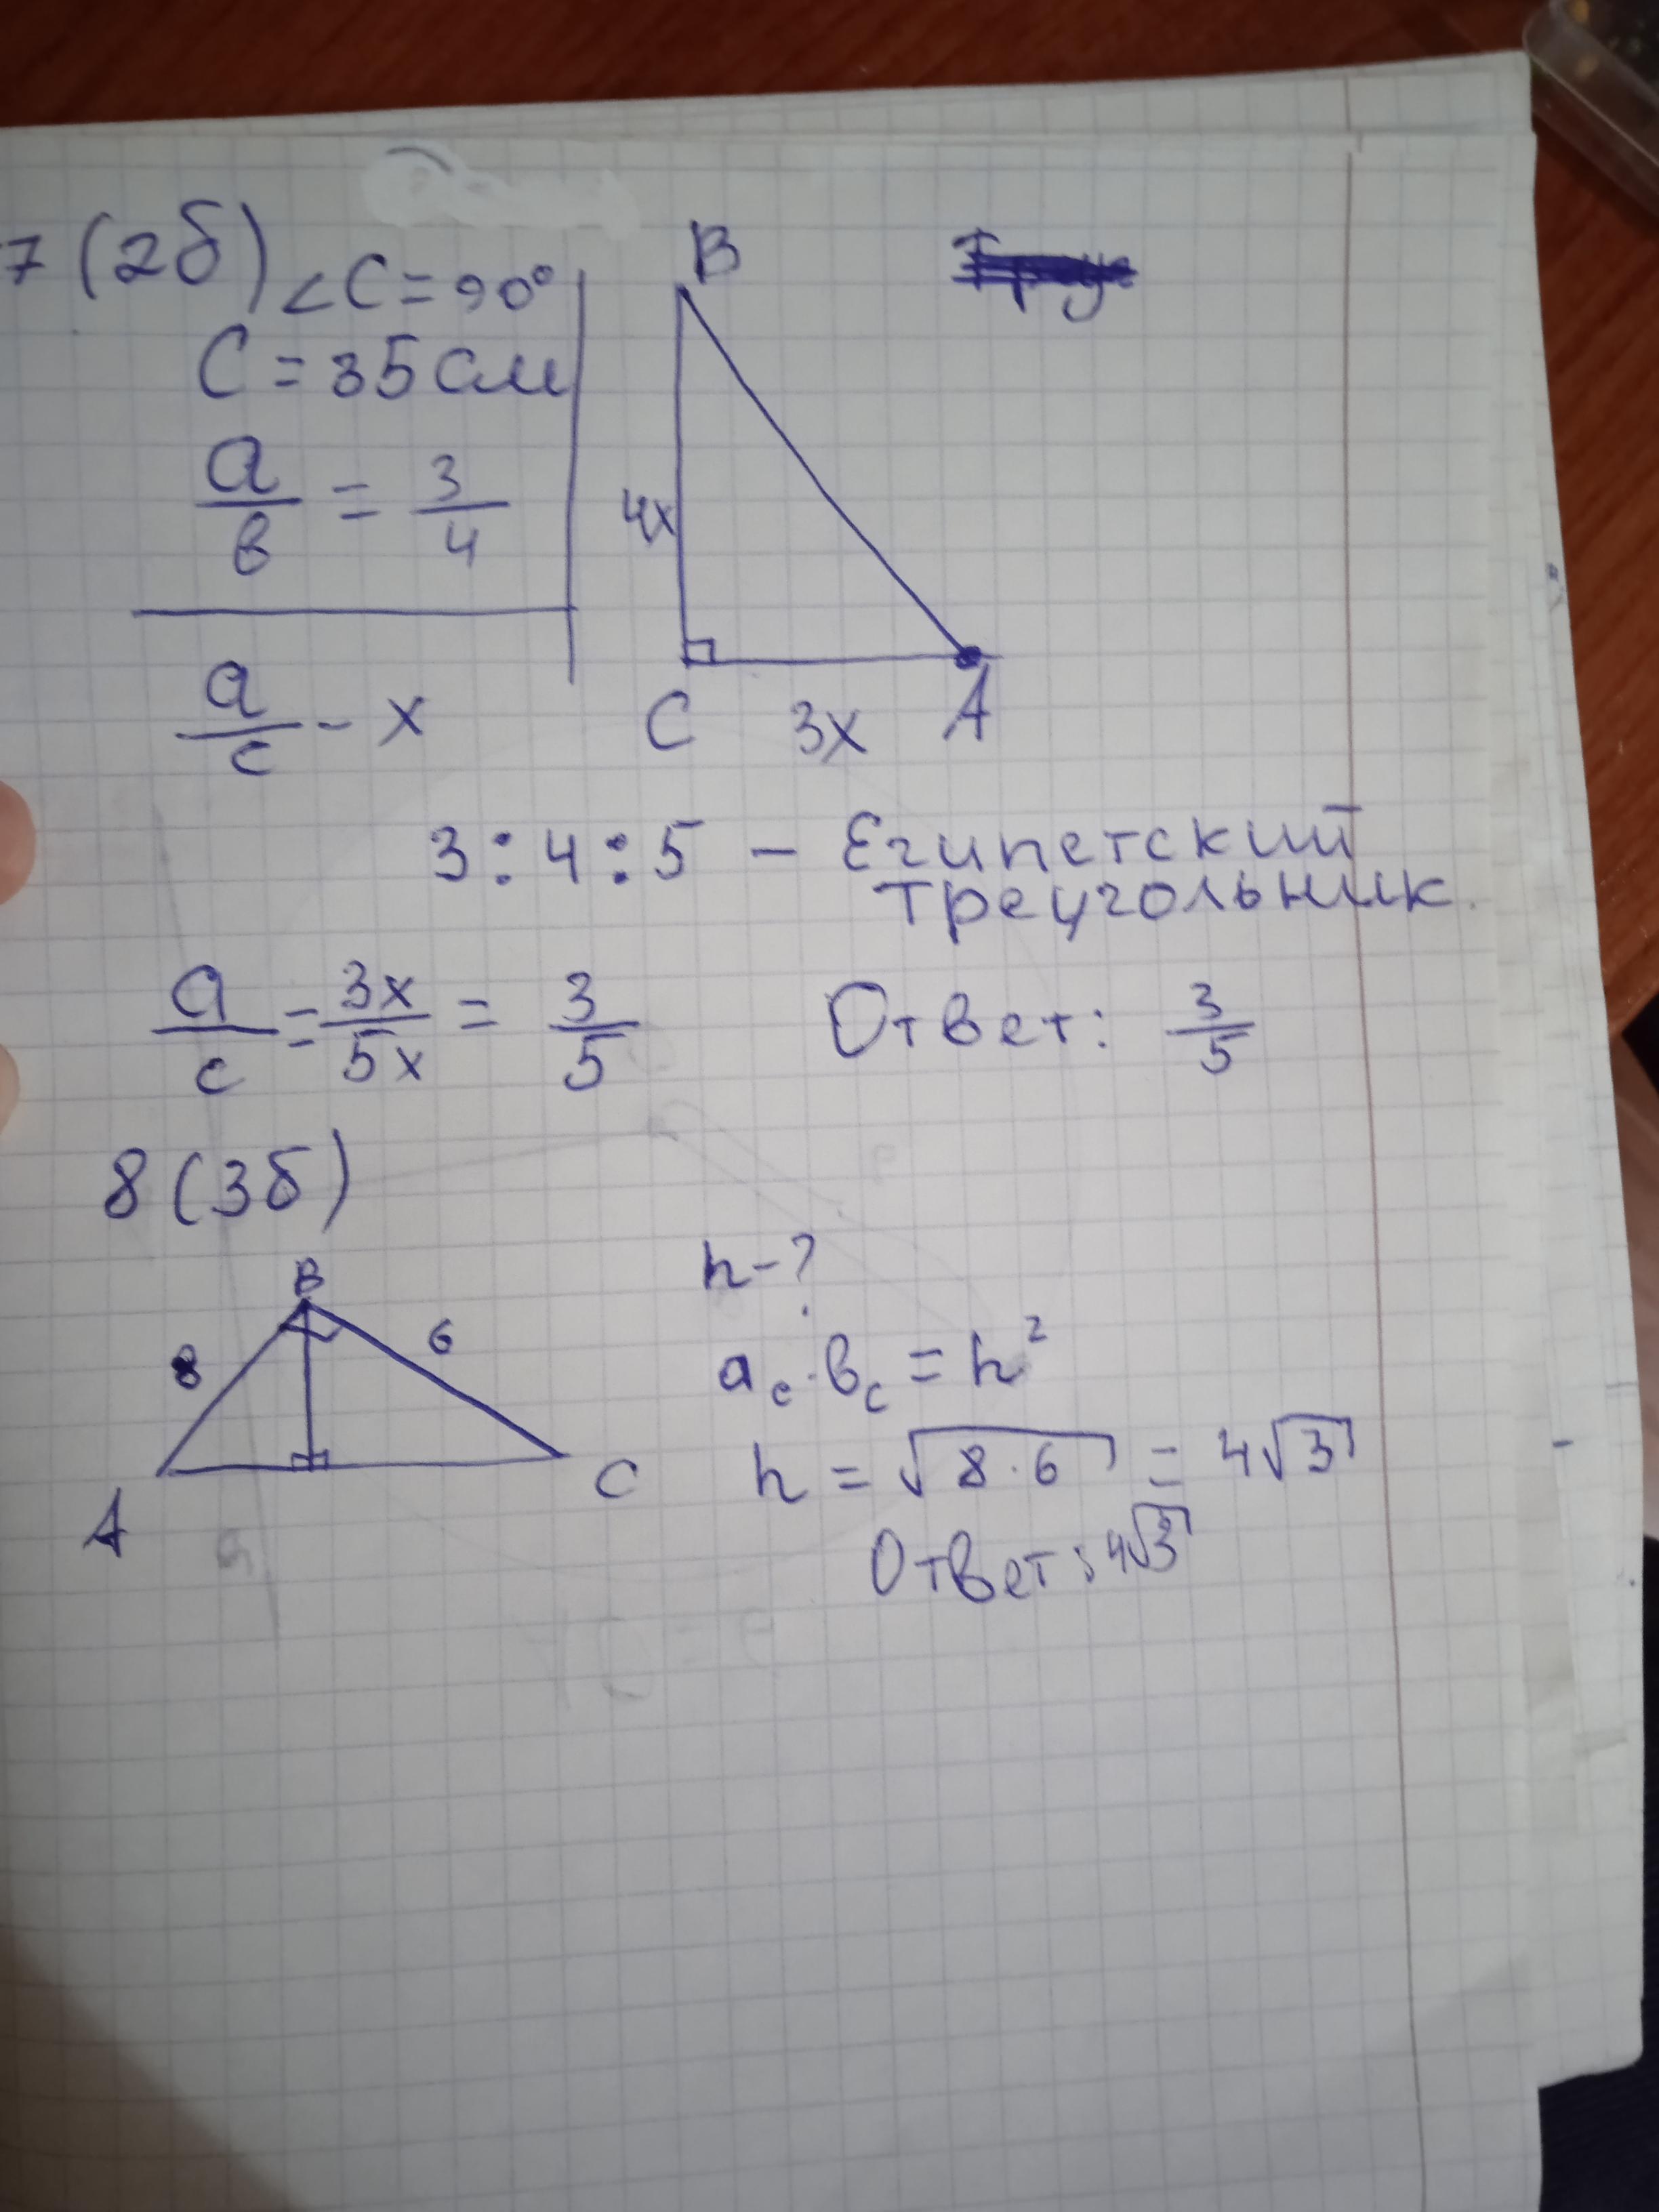 7 (2б) ∠C = 90°
C = 35 см
a/в = 3/4
a/c - x
B
4x
C 3x A
3 : 4 : 5 – Египетский
треугольник.
a/c = 3x/5x = 3/5 Ответ: 3/5
8 (3б)
B
8 6
A C
h - ?
a_c · в_c = h²
h = √8·6 = 4√3
Ответ: 4√3